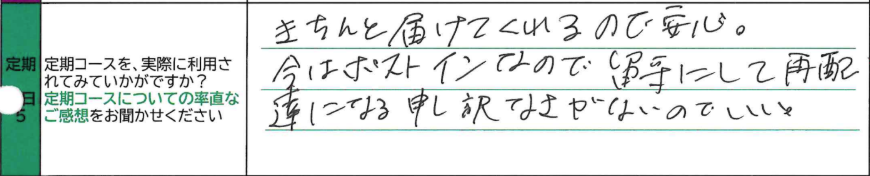 定期
日
5
定期コースを、実際に利用さ
れてみていかがですか？
定期コースについての率直な
ご感想をお聞かせください
きちんと届けてくれるので安心。
今はポストインなので留守にして再配
達になる申し訳なさがないのでいい。